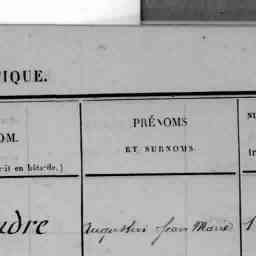 TIQUE.
PRÉNOMS
OM.
ET SURNOMS.
rit en bâtarde.)
udre Augustin Jean Marie 1